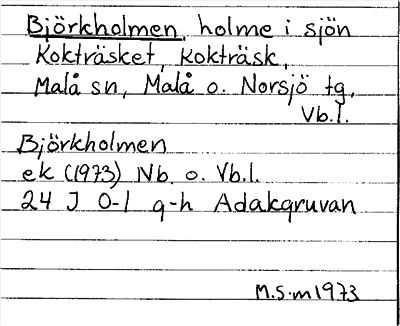 Björkholmen, holme i sjön
Kokträsket, Kokträsk,
Malå sn, Malå o. Norsjö tg,
Vb.l.
Björkholmen
ek (1973) Nb. o. Vb.l.
24 J 0-1 g-h Adakgruvan
M.S.m 1973